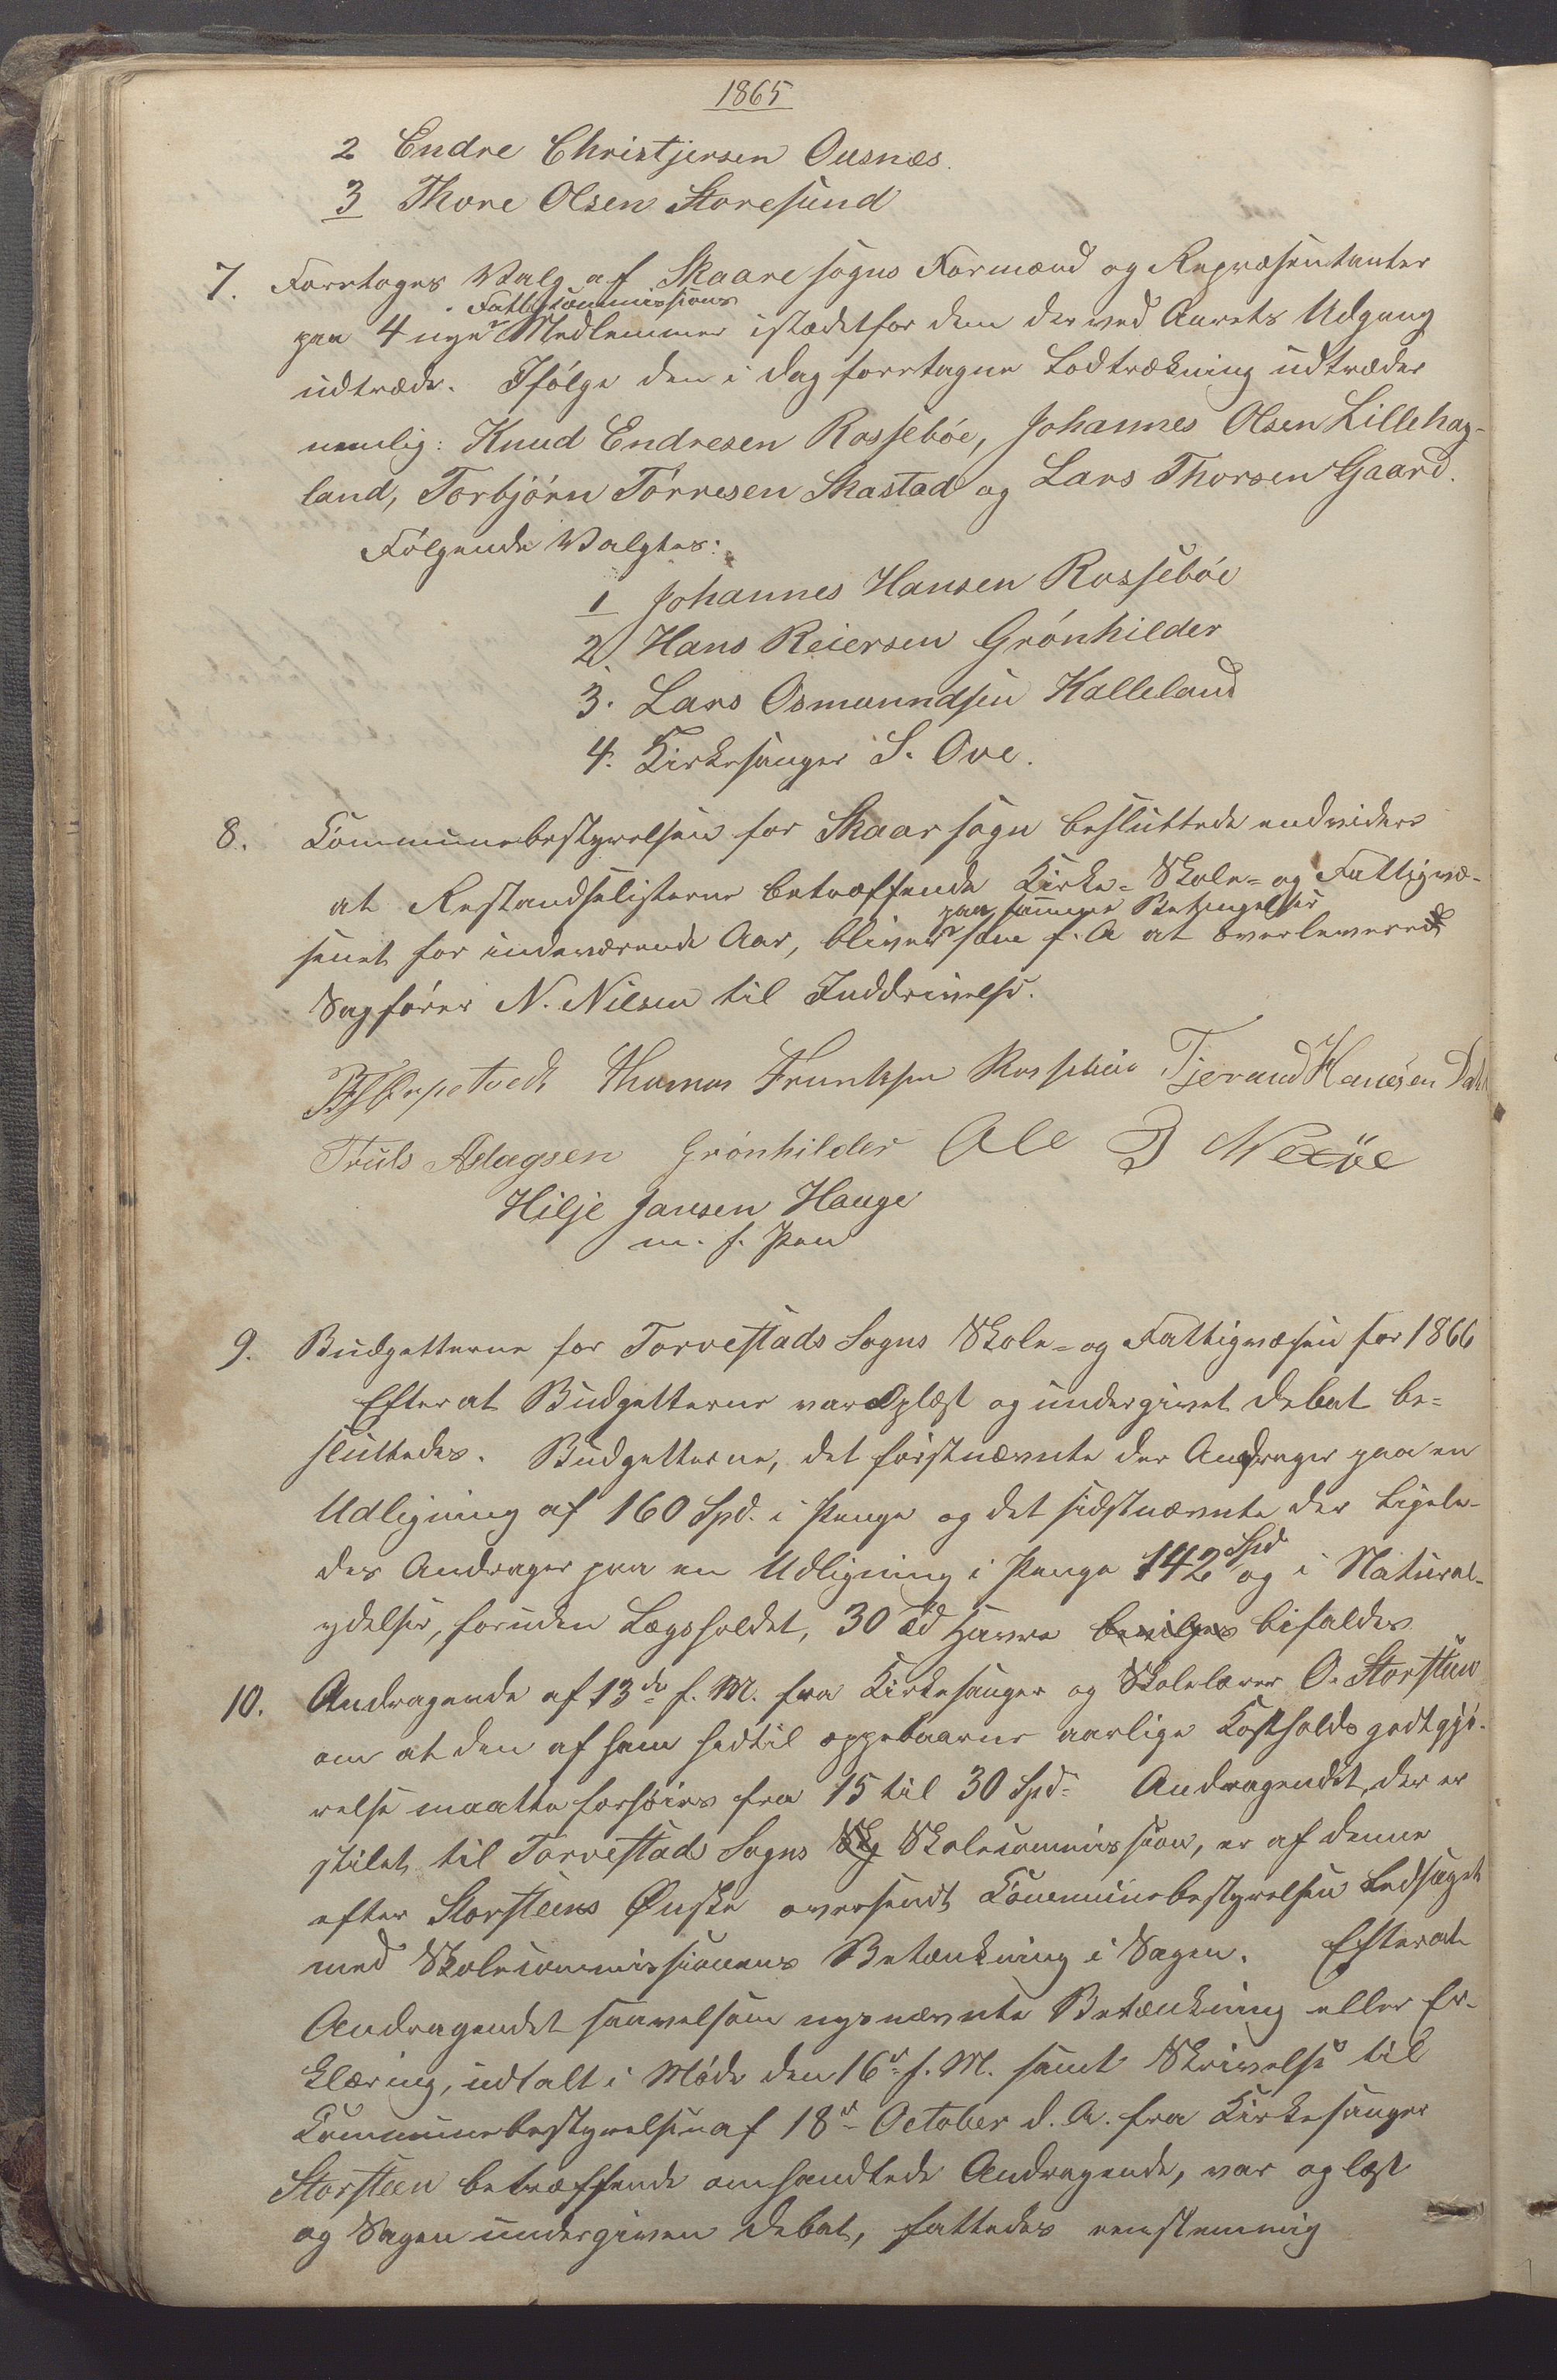 1865
2 Endre Christjersen Ousnæs.
3 Thore Olsen Storesund
7. Foretoges Valg af Skaare sogns Formænd og Repræsentanter
Fattigcommissions
paa 4 nye Medlemmer istædetfor dem der ved Aarets Udgang
udtræde. Ifølge den i dag foretagne Lodtrækning udtræder
nemlig: Knud Endresen Rossebøe, Johannes Olsen Lillehag-
land, Torbjørn Tørresen Skastad og Lars Thorsen Gaard.
Følgende Valgtes:
1 Johannes Hansen Rossebøe
2. Hans Reiersen Grønhilder
3. Lars Osmundsen Halleland
4. Kirkesanger S. Ove.
8. Communebestyrelsen for Skaar sogn besluttede endvidere
at Restandselisterne betræffende Kirke- Skole- og Fattigvæ-
paa samme Betingelser
senet for indeværende Aar, bliver som f. A at overlevere
Sagfører N. Nilsen til Inddrivelse.
Thomas Rossebøe Tjerand Hansen Dahl
Truls Aslagsen Grønhilder Ole B Nexöe
Hilje Jansen Hauge
m. f. Pen
9. Budgetterne for Torvestads Sogns Skole- og Fattigvæsen for 1866
Efterat Budgetterne var Oplæst og undergivet debat be-
sluttedes. Budgetterne, det førstnævnte der Andrager paa en
Udligning af 160 Spd. i Penge og det sidstnævnte der Ligele-
des Andrager paa en Udligning i Penge 142 Spd og i Natural-
ydelser, foruden Lægsholdet, 30 Td Havre bevilges bifaldes
10. Andragende af 13de f. M. fra Kirkesanger og Skolelærer O. Storsteen
om at den af ham hedtil oppebaarne aarlige Kostholds godtgjø-
relse maatte forhøies fra 15 til 30 Spd. Andragendet, der er
stilet til Torvestads Sogns Skolecommission, er af denne
efter Storsteens Ønske oversendt Communebestyrelsen Ledsaget
med Skolecommissionens Betænkning i Sagen. Efterat
Andragendet saavelsom nysnævnte Betænkning eller Er-
klæring, udtalt i Møde den 16de f. M. samt Skrivelse til
Communebestyrelsen af 18de October d. A. fra Kirkesanger
Storsteen betræffende omhandlede Andragende, var oplæst
og Sagen undergiven debat, fattedes eenstemmig